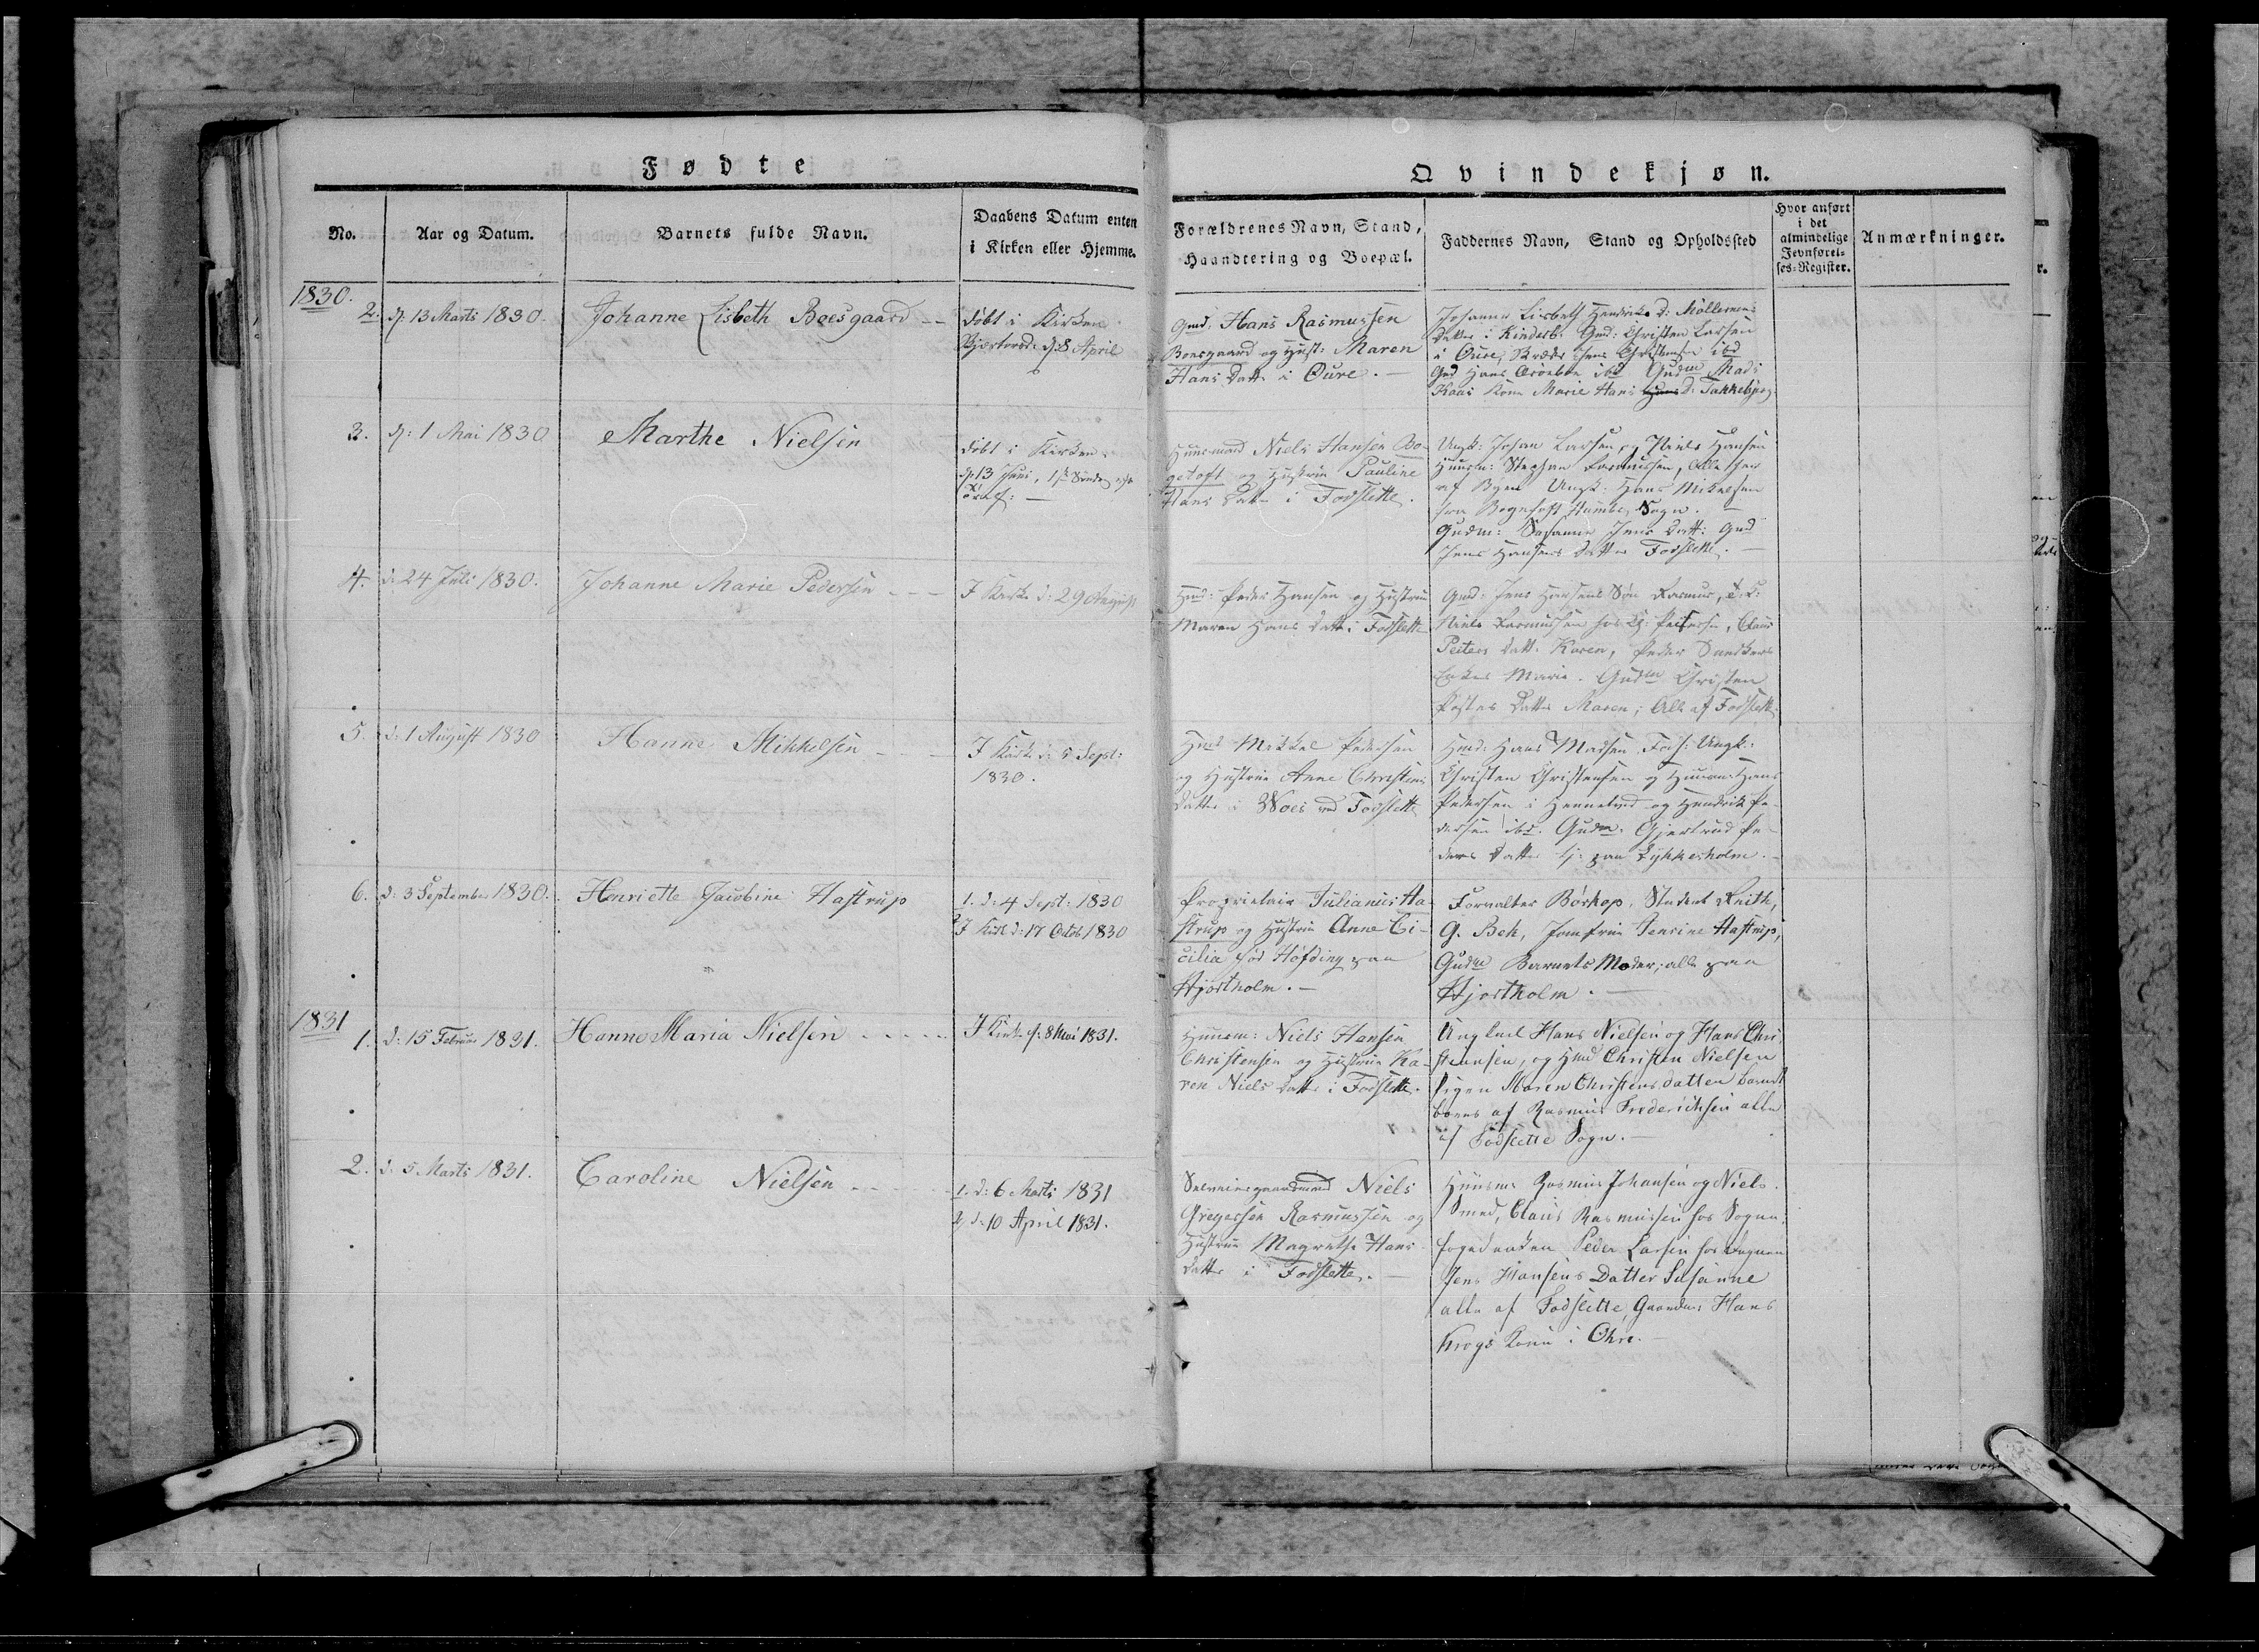 Fødte
Qvindekjøn.
No.
Aar og Datum.
Barnets fulde Navn.
Daabens Datum enten
i Kirken eller Hjemme.
Forældrenes Navn, Stand,
Haandtering og Boepæl.
Faddernes Navn, Stand og Opholdssted
Hvor anført
i det
almindelige
Jevnførel-
ses-Register.
Anmærkninger.
1830.
2. d: 13 Marts 1830.
Johanne Lisbeth Boesgaard
døbt i Kirken
d: 8 April
Gmd: Hans Rasmussen
Boesgaard og Hust: Maren
Hans Datt: i Øure.
Johanne Lisbeth Hendriks D: Møllerens
Datter i Gmd: Christen Larsen
i Øure, Christensen ibd
Gmd Hans ibd Gudm Mads
Kone Marie Hans D: Takkebjerg
3. d: 1 Mai 1830
Marthe Nielsen
døbt i Kirken
d. 13 Juni, 1ste Søndag
Huusmand Niels Hansen Bo-
getoft og Hustrue Pauline
Hans Datt i Fodslette.
Ungk: Johan Larsen, og Niels Hansen
Huusm: Stephan Rasmussen, Alle her
af Byen Ungk: Hans Mikelsen
fra Bogetoft Humble Sogn.
Gudm: Susanne Jens Datt: Gmd
Jens Hansens Datter Fodslette.
4. d: 24 Juli 1830.
Johanne Marie Pedersen
I Kirke d: 29 August
Hmd: Peder Hansen og Hustrue
Maren Hans Datt i Fodslette
Gmd: Jens Hansens Søn Rasmus,
Niels Rasmussen hos Petersen, Claus
Peiters Datt: Karen, Peder
Enkes Marie. Gudm Christen
Datter Maren; Alle af Fodslette
5. d: 1 August 1830
Hanne Mikkelsen
I Kirke d: 5 Sept:
1830.
Hmd Mikkel Pedersen
og Hustrue Anne Christens
Datter i Woes ved Fodslette
Hmd: Hans Madsen, Ungk:
Christen Christensen og Huusm: Hans
Pedersen i Hennetved og Hendrik Pe-
dersen ibd. Gudm: Gjertrud Pe-
ders Datter tj: paa Lykkesholm.
6. d: 3 September 1830.
Henriette Jacobine Hastrup
1. d: 4 Sept: 1830
2. I Kirke d: 17 Octob 1830
Proprietair Julianus Ha-
strup og Hustrue Anne Ce-
cilia fød Høfding paa
Hjortholm.
Forvalter Børkop, Student Reith,
G. Beh, Jomfrue Jensine Hastrup,
Gudm Barnets Moder; alle paa
Hjortholm.
1831
1. d: 15 Februar 1831.
Hanne Maria Nielsen
I Kirke d: 8 Mai 1831.
Huusm: Niels Hansen
Christensen og Hustrue Ka-
ren Niels Datter i Fodslette.
Ungkarl Hans Nielsen og Hans Chri-
stensen, og Hmd Christen Nielsen
Pigen Maren Christensdatter
af Rasmus Frederichsen alle
af Fodslette Sogn.
2. d: 5 Marts 1831.
Caroline Nielsen
1. d: 6 Marts 1831
2, d: 10 April 1831.
Niels
Gregersen Rasmussen og
Hustrue Magrethe Hans
Datter i Fodslette.
Huusm: Rasmus Johansen og Niels
Smed, Claus Rasmussen hos Sogne-
fogeden Peder Larsen hos Degnen
Jens Hansens Datter Susanne
alle af Fodslette, Gaardm: Hans
Krogs Kone i Ohre.